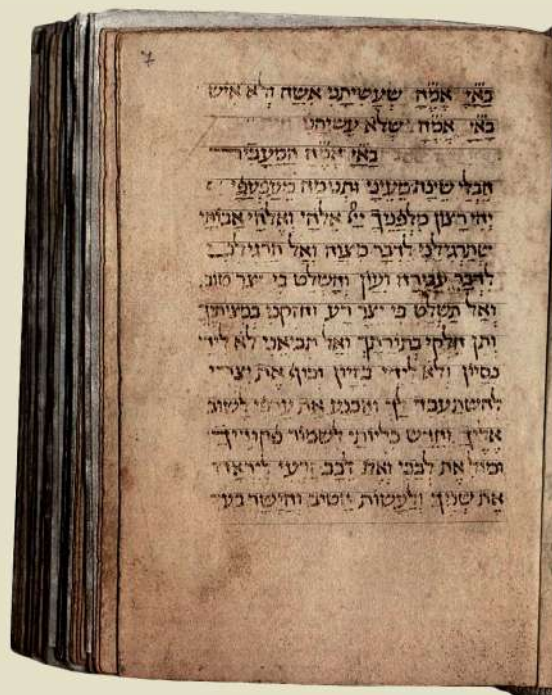 7
בא״י אמ״ה שעשיתני אשה ולא איש
בא״י אמ״ה שלא עשיתני
בא״י אמ״ה המעביר
חבלי שינה מעיני ותנומה מעפעפי
יהי רצון מלפניך ייי אלהי ואלהי אבותי
שתרגילני לדבר מצוה ואל תרגילני
לדבר עבירה ועון ותשלט בי יצר טוב
ואל תשלט בי יצר רע וחזקנו במצותיך
ותן חלקי בתורתך ואל תביאני לא לידי
נסיון ולא לידי בזיון וכוף את יצרי
להשתעבד לך והכנע את ערפי לשוב
אליך וחדש כליותי לשמור פקודיך
ומול את לבבי ואת לבב זרעי ליראה
את שמך ולעשות הטוב והישר בעי